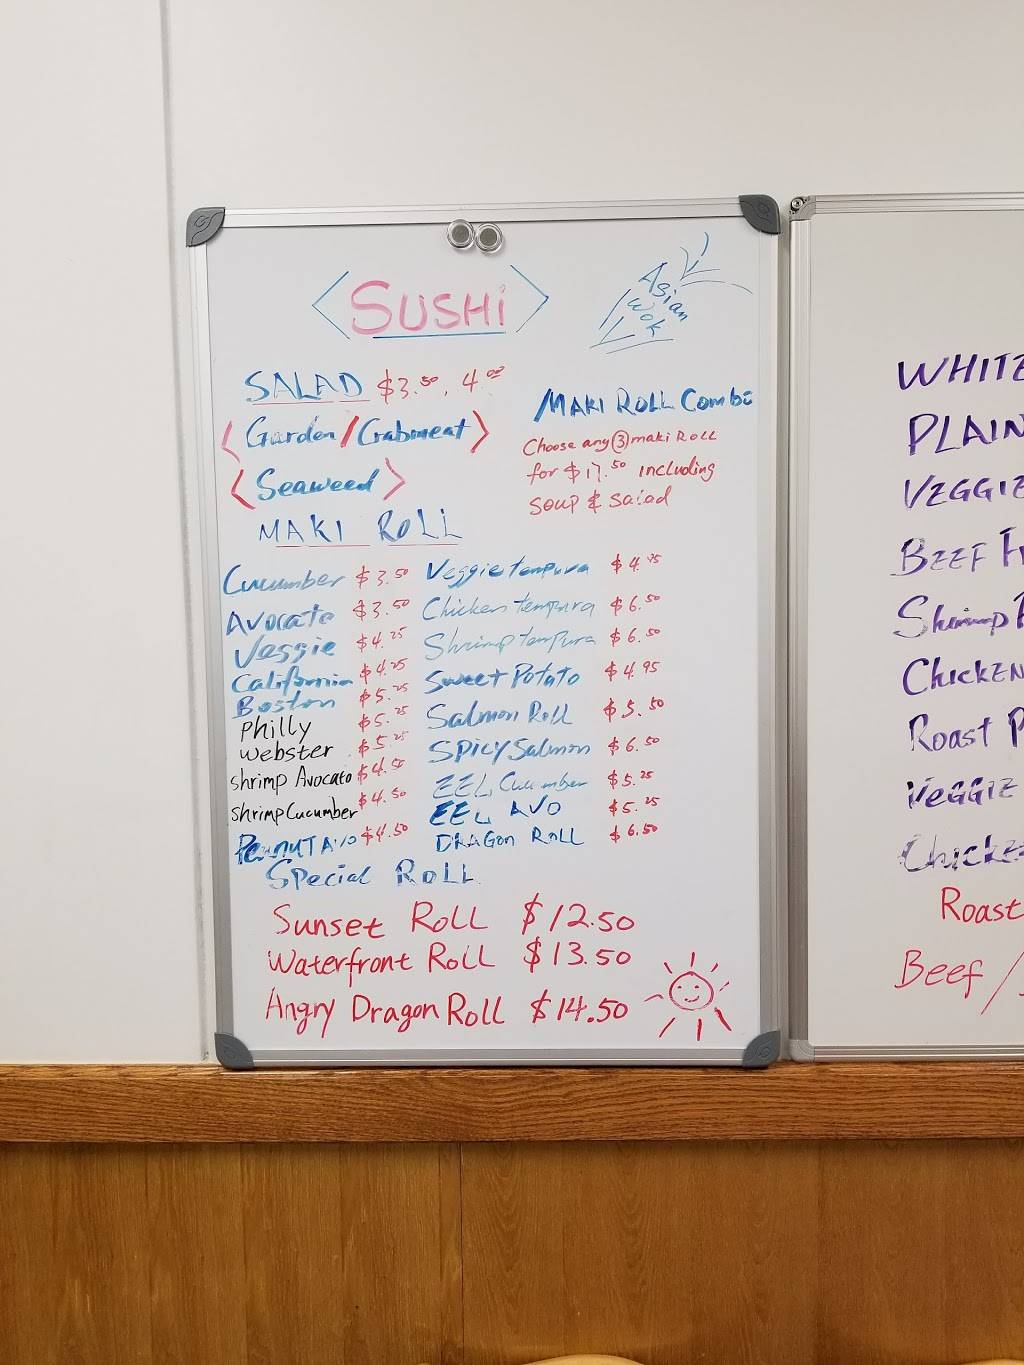 SUSHi
Asian
Wok
SALAD $3.50, 4.00
Garden/Crabmeat
Seaweed
MAKI ROLL
MAKI ROLL Combo
Choose any ③ maki ROLL
for $17.50 including
soup & salad
Cucumber $3.50
Avocato $3.50
Veggie $4.25
California $4.25
Boston $5.25
Philly $5.25
webster $5.25
shrimp Avocato $4.50
shrimp Cucumber $4.50
PeanuT AVO $4.50
Veggie tempura $4.25
Chicken tempura $6.50
Shrimp tempura $6.50
Sweet Potato $4.95
Salmon Roll $5.50
SPicy Salmon $6.50
EEL Cucumber $5.25
EEL AVO $5.25
DRAGon ROLL $6.50
SPecial ROLL
Sunset ROLL $12.50
Waterfront ROLL $13.50
Angry Dragon ROLL $14.50
WHITE
PLAIN
VEGGIE
BEEF
Shrimp
CHICKEN
Roast P
VeGGIE
Chicke
Roast
Beef /